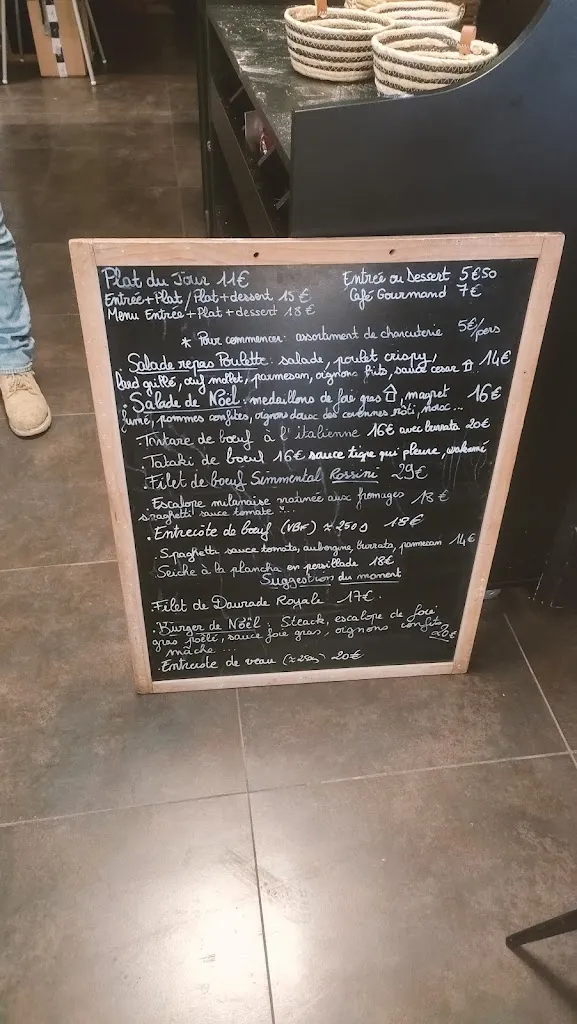 Plat du Jour 11€
Entrée ou Dessert 5€50
Entrée+Plat / Plat+dessert 15€
Café Gourmand 7€
Menu Entrée+Plat+dessert 18€
* Pour commencer: assortiment de charcuterie 5€/pers
Salade repas Poulette: salade, poulet crispy,
lard grillé, œuf mollet, parmesan, oignons frits, sauce cesar 14€
. Salade de Noël: medaillons de foie gras, magret 16€
fumé, pommes confites, oignons doux des cevennes rôti, mâche...
. Tartare de bœuf à l'italienne 16€ avec burrata 20€
. Tataki de bœuf 16€ sauce tigre qui pleure, wakamé
. Filet de bœuf Simmental Rossini 29€
. Escalope milanaise gratinée aux fromages 18€
spaghetti sauce tomate...
. Entrecôte de bœuf (VBF) ≈ 250g 18€
. Spaghetti sauce tomate, aubergine, burrata, parmesan 14€
Seiche à la plancha en persillade 18€
Suggestion du moment
Filet de Daurade Royale 17€.
. Burger de Noël: Steack, escalope de foie
gras poêlé, sauce foie gras, oignons confits 20€
mâche...
. Entrecote de veau (≈250g) 20€